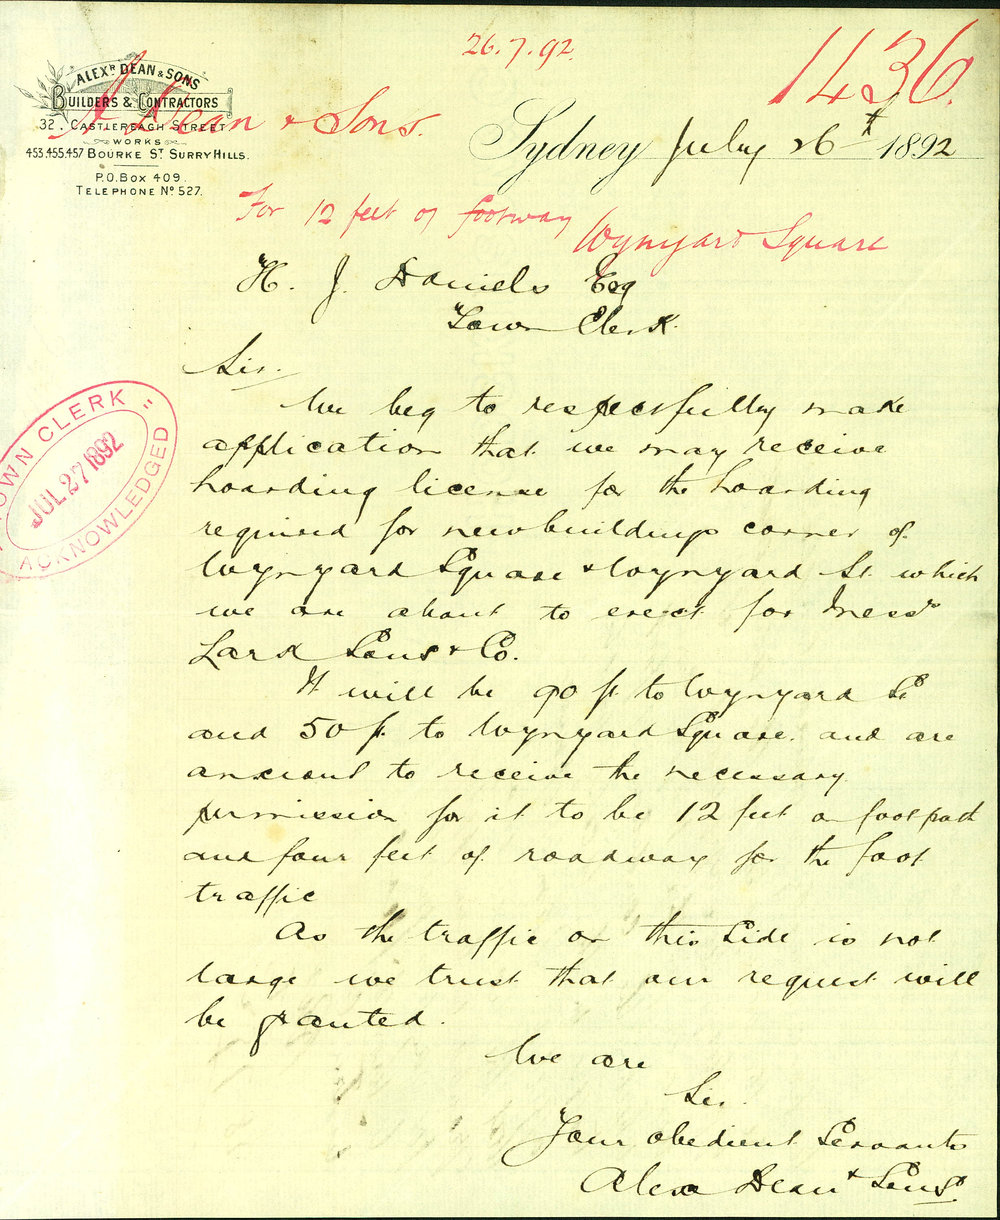 26.7.92.
1436.
ALEXR. DEAN & SONS
BUILDERS & CONTRACTORS
32, CASTLEREAGH STREET
WORKS
453.455.457 BOURKE ST. SURRY HILLS.
P.O. BOX 409.
TELEPHONE No. 527.
A Dean & Sons.
Sydney July 26th 1892
For 12 feet of footway Wynyard Square
H. J. Daniels Esq
Town Clerk.
Sir.
We beg to respectfully make
application that we may receive
hoarding license for the hoarding
required for new buildings corner of
Wynyard Square & Wynyard St. which
we are about to erect for Messrs
Lark Sons & Co.
It will be 90 ft to Wynyard St
and 50 ft. to Wynyard Square. and are
anxious to receive the necessary
permission for it to be 12 feet on footpath
and four feet of roadway for the foot
traffic
As the traffic on this side is not
large we trust that our request will
be granted.
We are
Sir.
Your obedient Servants
Alexr Dean & Sons.
TOWN CLERK
JUL 27 1892
ACKNOWLEDGED